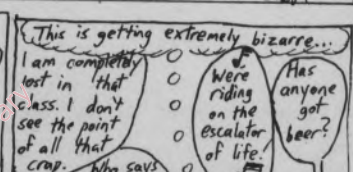 This is getting extremely bizarre...
I am completely
lost in that
class. I don't
see the point
of all that
crap.
Who says
We're
riding
on the
escalator
of life!
Has
anyone
got
beer?